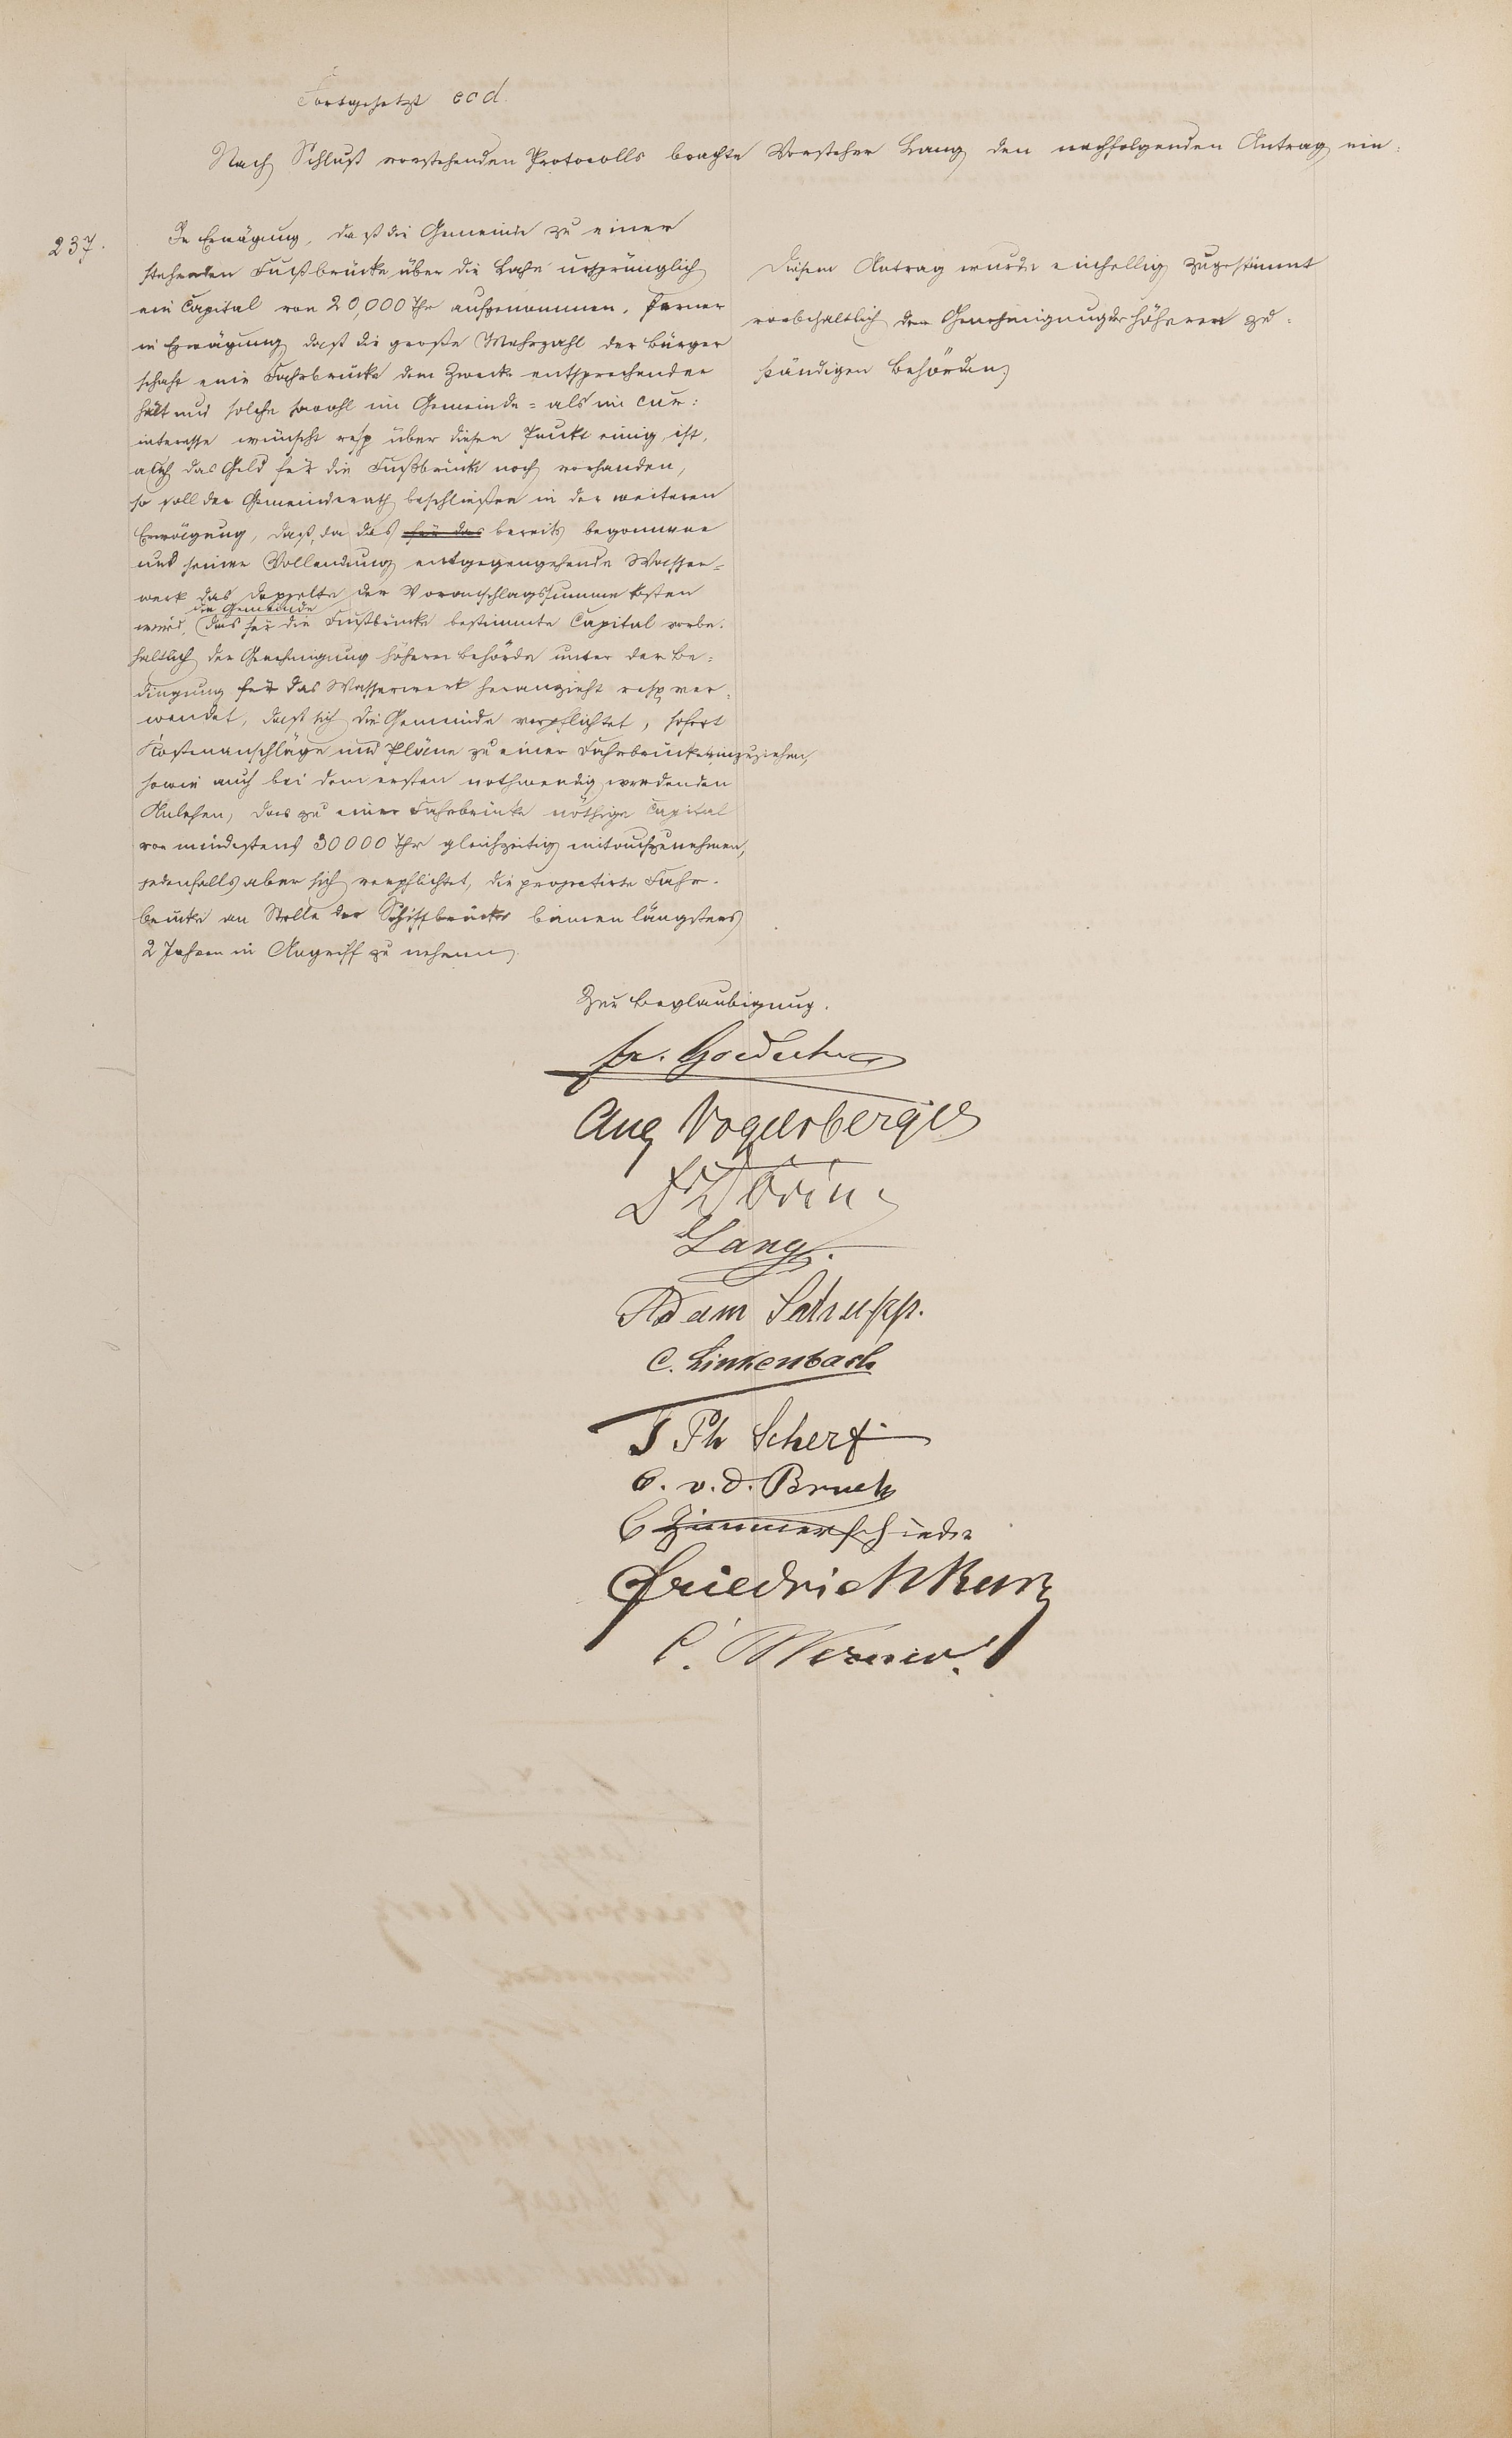 Fortgesetzt eod.
Nach Schluß vorstehenden Protocolls brachte Vorsteher Lang den nachfolgenden Antrag ein:
237.
In Erwägung, daß die Gemeinde zu einer
stehenden Fußbrücke über die Lahn ursprünglich
ein Capital von 20,000 Thr aufgenommen, ferner
in Erwägung daß die große Mehrzahl der Bürger
schaft eine Fahrbrücke dem Zwecke entsprechender
hält und solche sowohl im Gemeinde- als im Cur:
interesse wünscht resp über diesen Punkt einig ist,
auch das Geld für die Fußbrücke noch vorhanden,
so soll der Gemeinderath beschließen in der weiteren
Erwägung, daß, da das für das bereits begonnene
und seiner Vollendung entgegengehende Wasser-
werk das doppelte der Voranschlagssumme kosten
wird, die Gemeinde das für die Fußbrücke bestimmte Capital vorbe-
haltlich der Genehmigung höherer Behörde unter der Be-
dingung für das Wasserwerk heranzieht resp ver-
wendet, daß sich die Gemeinde verpflichtet, sofort
Kostenanschläge und Pläne zu einer Fahrbrücke einzuziehen,
sowie auch bei dem ersten nothwendig werdenden
Anlehen, das zu einer Fahrbrücke nöthige Capital
von mindestens 30000 Thr gleichzeitig mitaufzunehmen,
jedenfalls aber sich verpflichtet, die projectirte Fahr-
brücke an Stelle der Schiffbrücke binnen längstens
2 Jahren in Angriff zu nehmen.
Diesem Antrag wurde einhellig zugestimmt
vorbehaltlich der Genehmigung der höheren zu-
ständigen Behörden.
Zur Beglaubigung.
Fr. Goedecke
Aug Vogelsberger
Dr Döring
Lang.
Adam Schupp.
C. Linkenbach
J Ph Scherf
C. v. d. Bruch
C Zimmerschied
Friedrich Kurz
C. Werner.